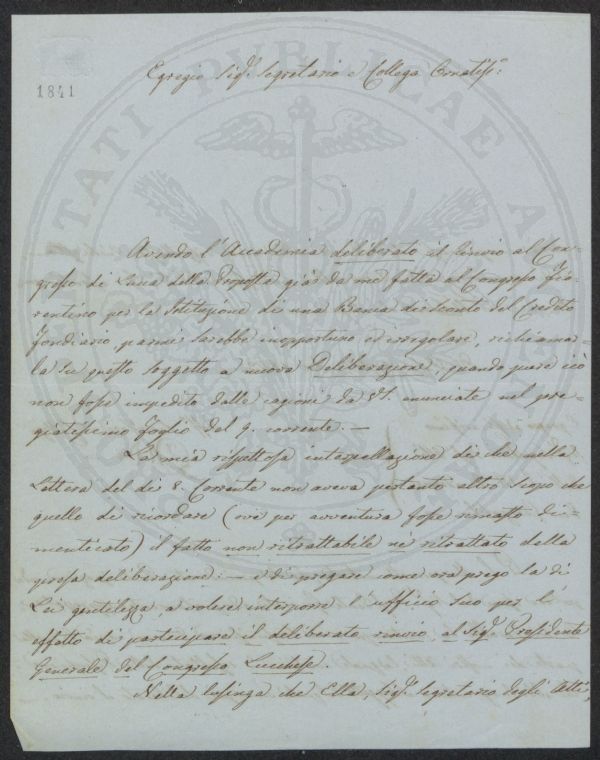 1841
Egregio Sigr. Segretario e Collega Ornatisso:
Avendo l'Accademia deliberato il rinvio al Con-
gresso di Lucca della Proposta già da me fatta al Congresso Fio-
rentino per la Istituzione di una Banca di sconto del Credito
fondiario, parmi sarebbe inopportuno ed irregolare, richiamar-
la su questo soggetto a nuova Deliberazione, quando pure ciò
non fosse impedito dalle cagioni da enunciate nel pre-
giatissimo foglio del 9. corrente. —
La mia rispettosa interpellazione di che nella
Lettera del dì 8. Corrente non aveva pertanto altro scopo che
quello di ricordare (ove per avventura fosse rimasto di-
menticato) il fatto non ritrattabile nè ritrattato della
presa deliberazione: — e di pregare come ora prego la di
Lei gentilezza, a volere interporre l'ufficio suo per l'
effetto di partecipare il deliberato rinvio, al Sigr. Presidente
Generale del Congresso Lucchese.
Nella lusinga che Ella, Sigr. Segretario degli Atti,